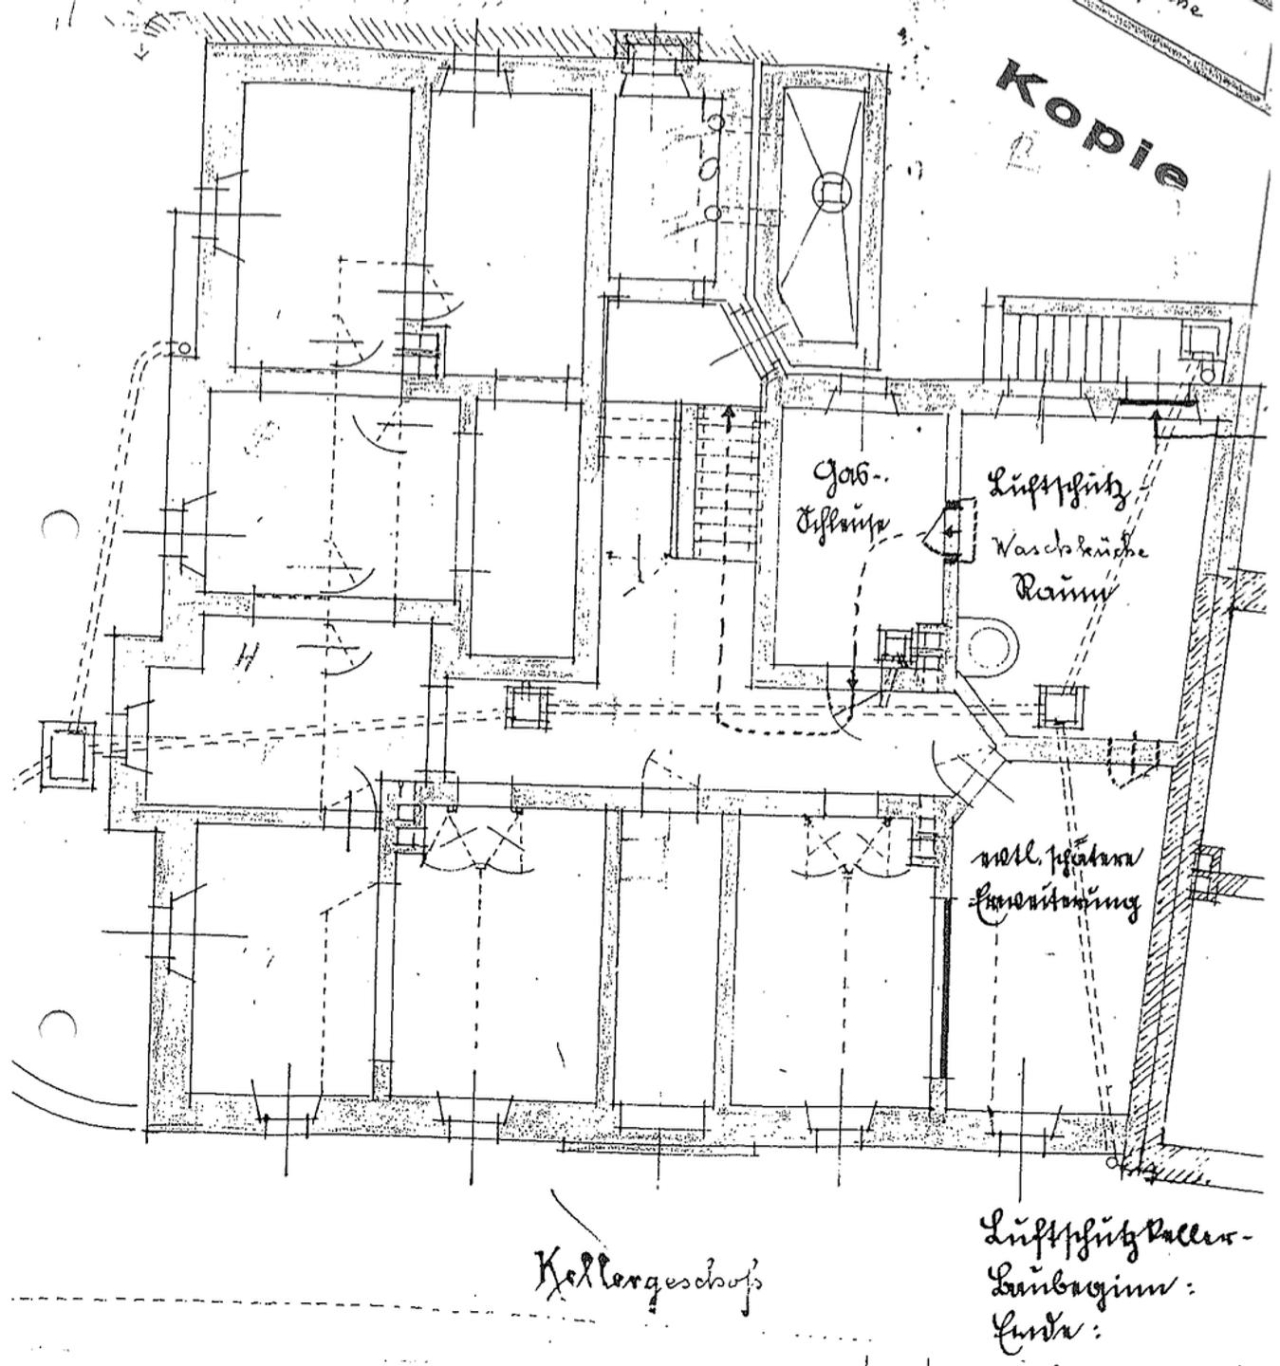 Kopie
Gas-
Schleuse
Luftschutz
Waschküche
Raum
evtl. spätere
Erweiterung
H
Kellergeschoß
Luftschutzkeller-
Baubeginn:
Ende: